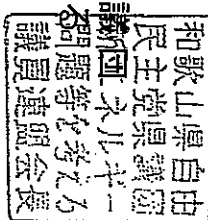 和歌山県自由
民主党県議団
ネルギー
問題等を考える
議員連盟会長